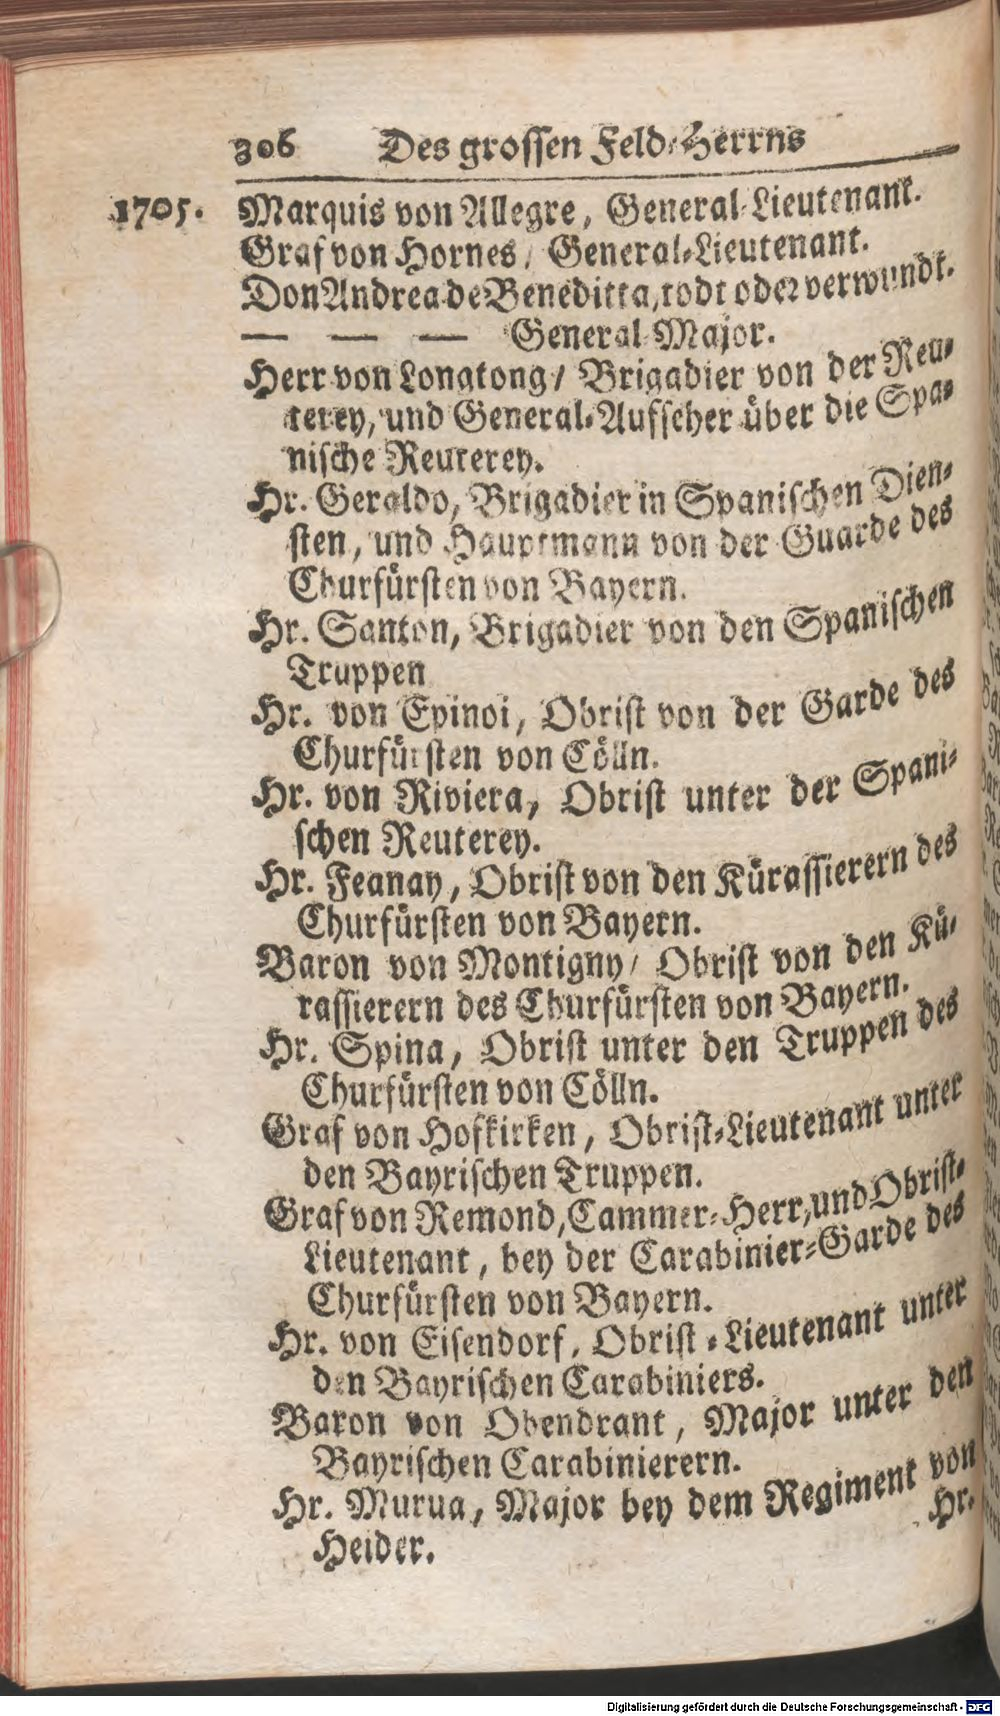 306 Des grossen Feld-Herrns
1705. Marquis von Allegre, General-Lieutenant.
Graf von Hornes, General-Lieutenant.
Don Andrea de Beneditta, todt oder verwundt.
— — — General-Major.
Herr von Longtong/ Brigadier von der Reu-
terey, und General-Aufseher über die Spa-
nische Reuterey.
Hr. Geraldo, Brigadier in Spanischen Dien-
sten, und Hauptmann von der Guarde des
Churfürsten von Bayern.
Hr. Santon, Brigadier von den Spanischen
Truppen
Hr. von Epinoi, Obrist von der Garde des
Churfürsten von Cölln.
Hr. von Riviera, Obrist unter der Spani-
schen Reuterey.
Hr. Feanay, Obrist von den Kürassierern des
Churfürsten von Bayern.
Baron von Montigny/ Obrist von den Kü-
rassierern des Churfürsten von Bayern.
Hr. Spina, Obrist unter den Truppen des
Churfürsten von Cölln.
Graf von Hofkirken, Obrist-Lieutenant unter
den Bayrischen Truppen.
Graf von Remond, Cammer-Herr, und Obrist-
Lieutenant, bey der Carabinier-Garde des
Churfürsten von Bayern.
Hr. von Eisendorf, Obrist-Lieutenant unter
den Bayrischen Carabiniers.
Baron von Obendrant, Major unter den
Bayrischen Carabinierern.
Hr. Murua, Major bey dem Regiment von
Heider.
Hr.
Digitalisierung gefördert durch die Deutsche Forschungsgemeinschaft - DFG